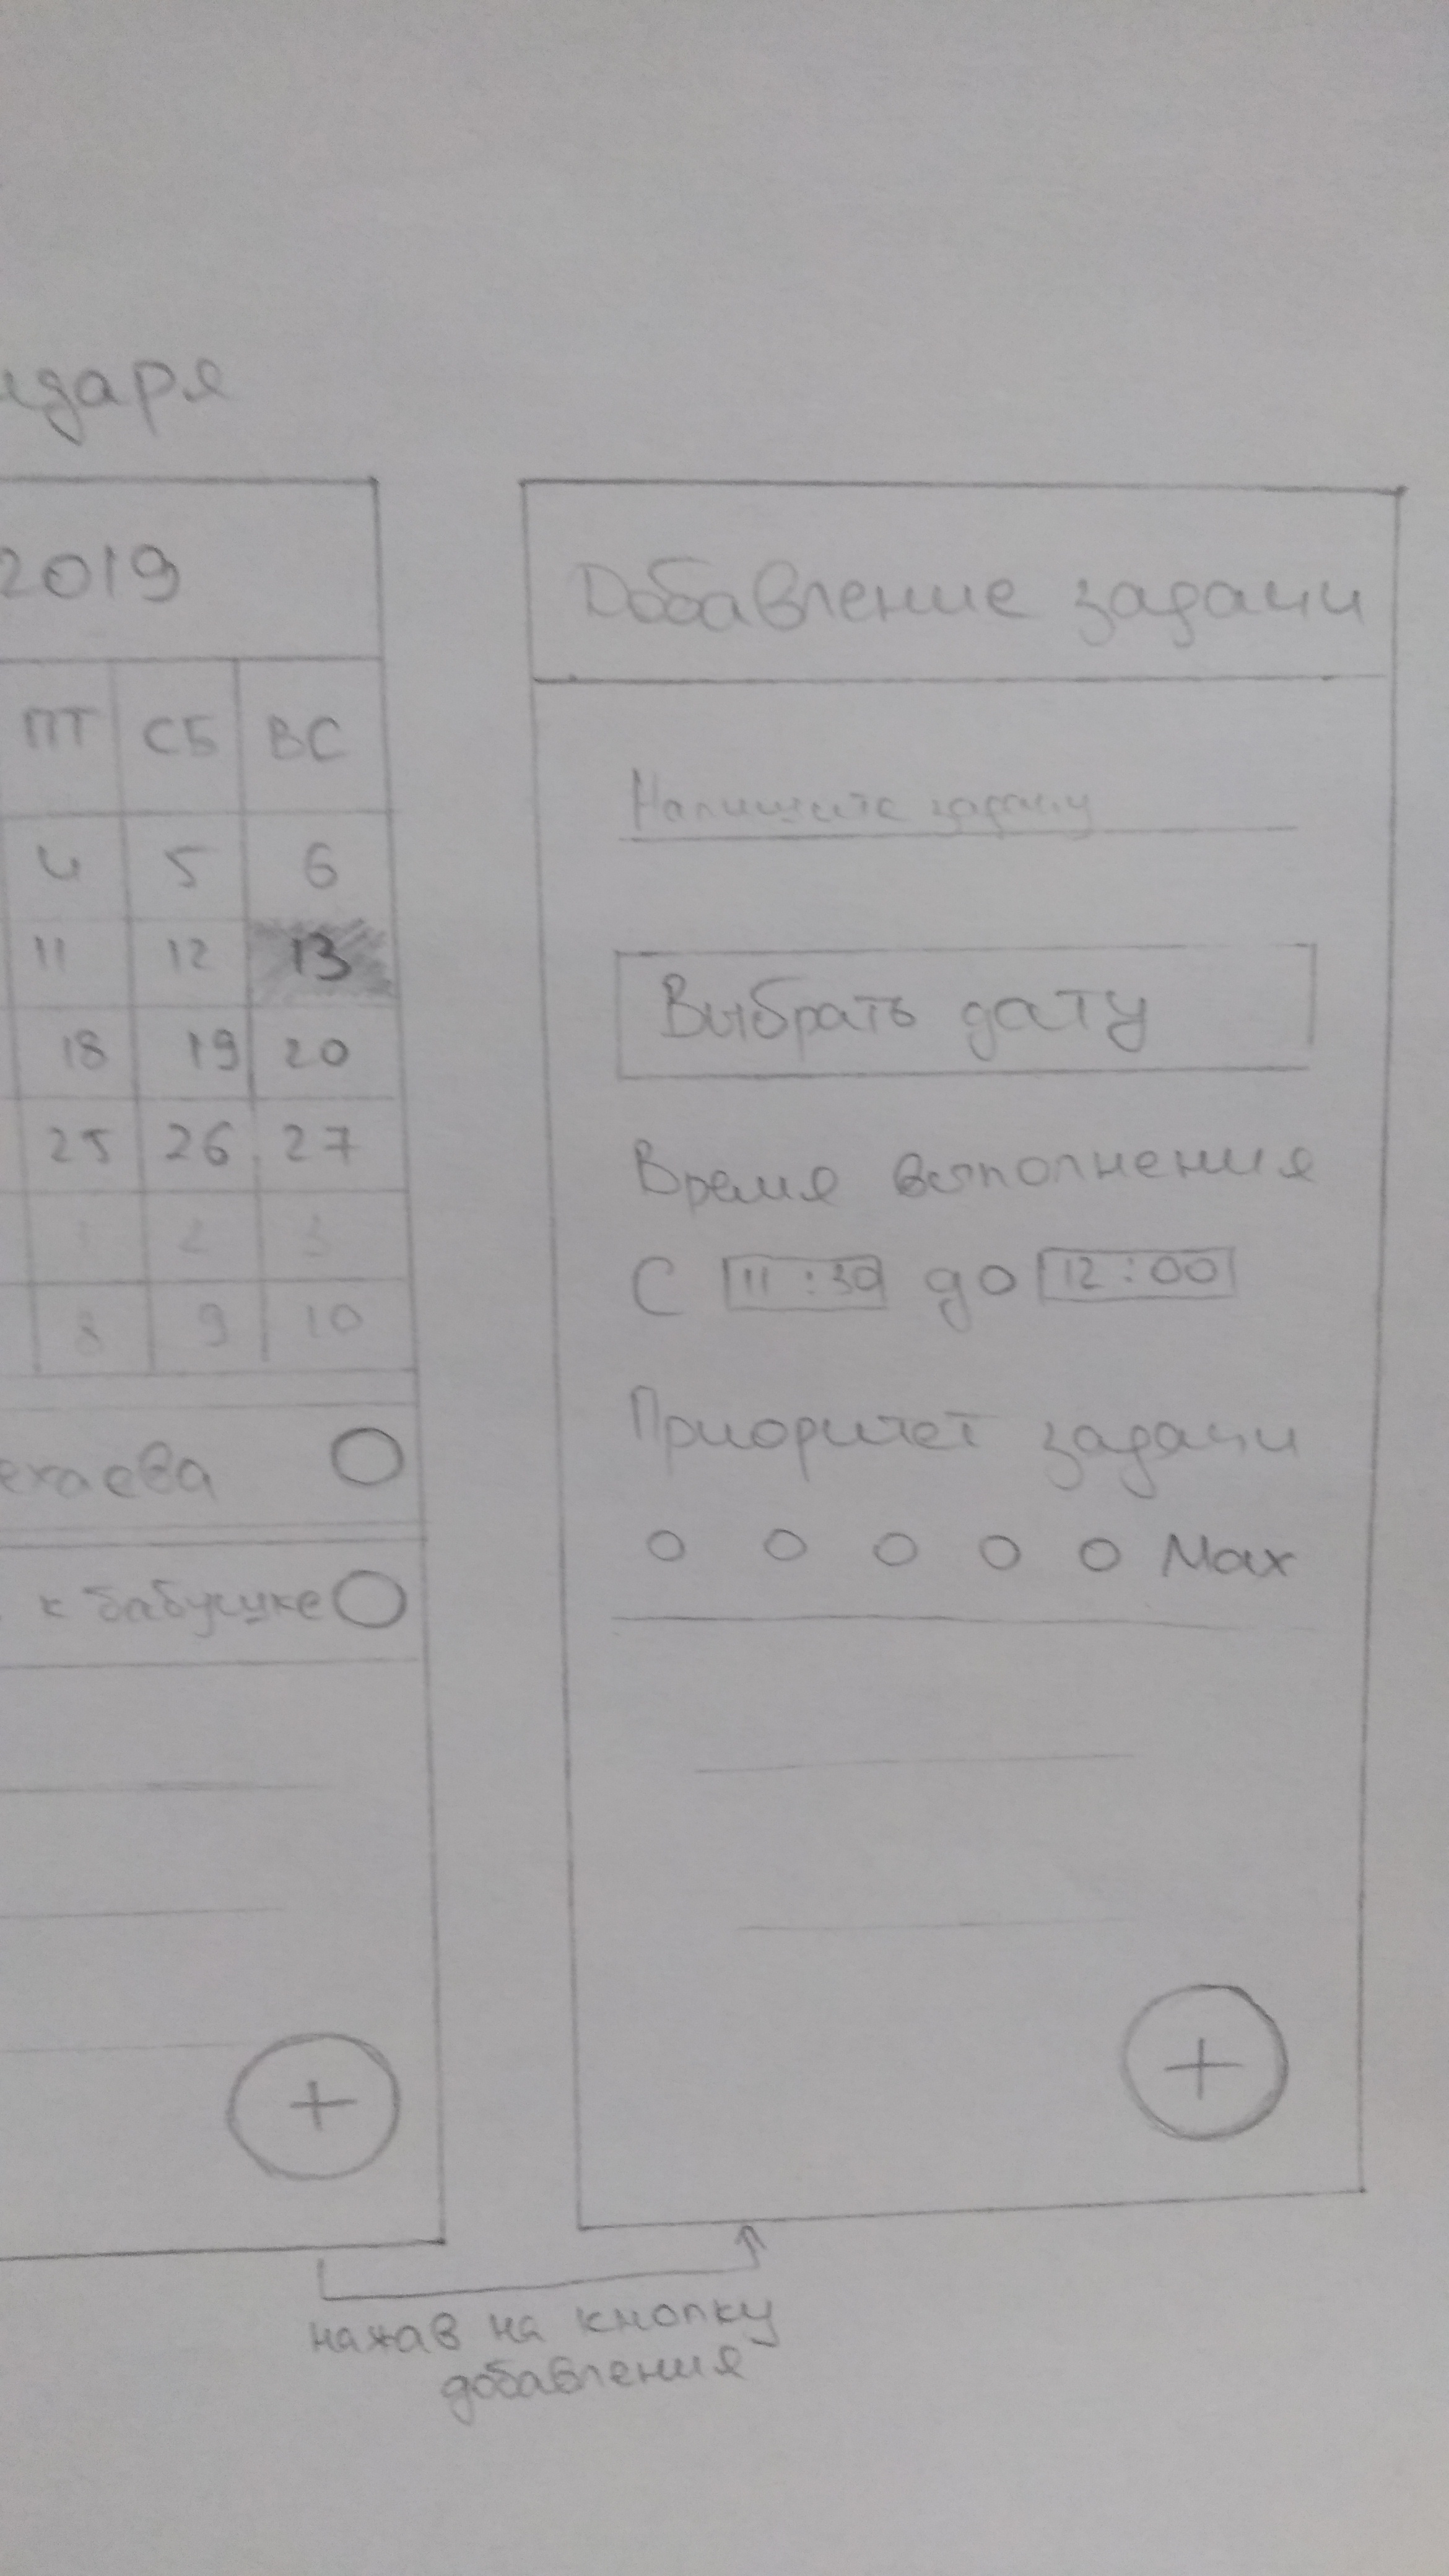 ндаря
2019
ПТ СБ ВС
4 5 6
11 12 13
18 19 20
25 26 27
1 2 3
8 9 10
ехаева
к бабушке
+
Добавление задачи
Напишите задачу
Выбрать дату
Время выполнения
С 11:30 до 12:00
Приоритет задачи
Max
+
нажав на кнопку
добавления